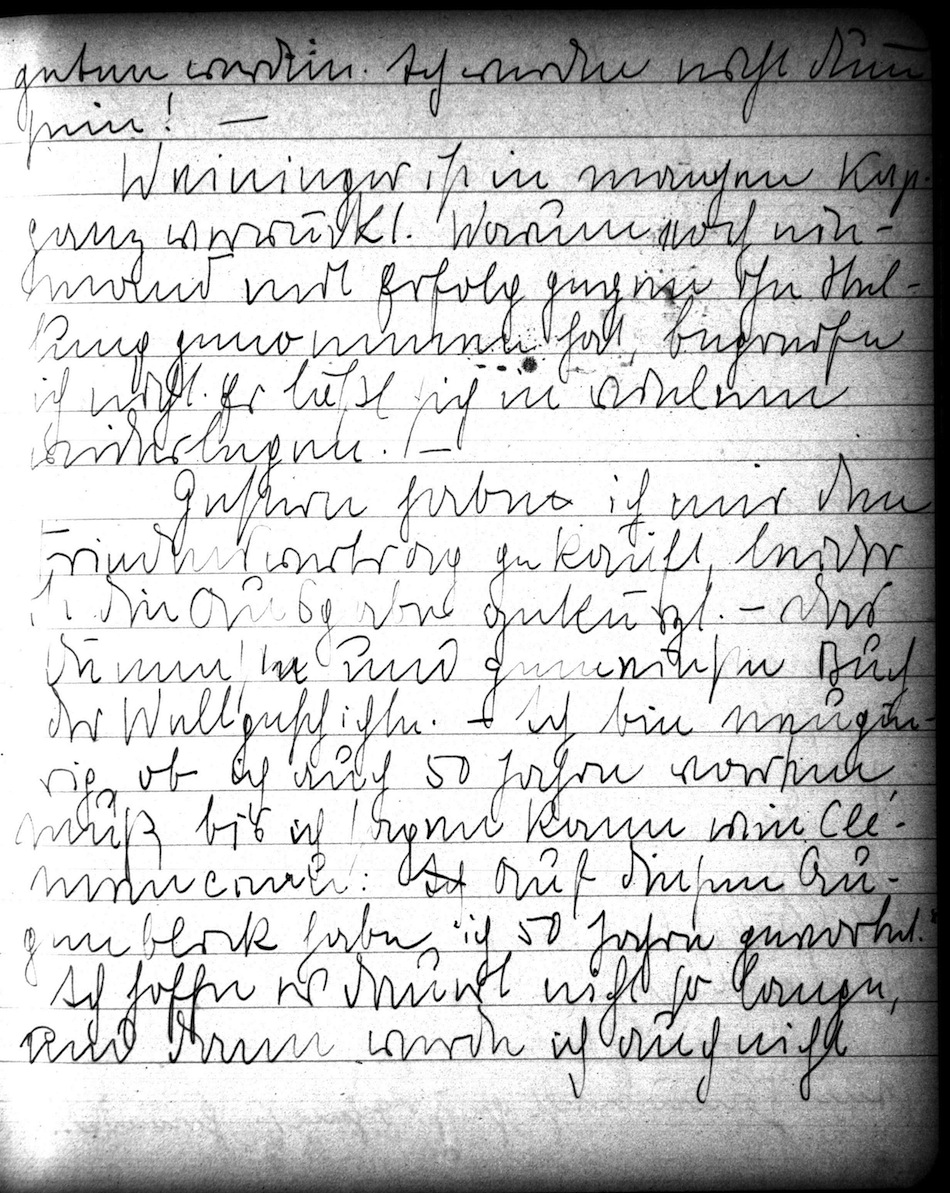 geben werden. Ich werde nicht dum
sein! —
Weininger ist in manchen Kap.
ganz verrückt. Warum noch nie-
mand mit Erfolg gegen ihn Stel-
lung genommen hat, begreife
ich nicht. Er läßt sich in vielem
widerlegen. —
Gestern habe ich mir den
Friedensvertrag gekauft, leider
ist die Ausgabe gekürzt. – Das
dümmste und gemeinste Buch
der Weltgeschichte. – Ich bin neugie-
rig, ob ich auch 50 Jahre warten
muß bis ich sagen kann wie Clé-
menceau: Auf diesen Au-
genblick habe ich 50 Jahre gewartet.
Ich hoffe es dauert nicht so lange,
und dann werde ich auch nicht